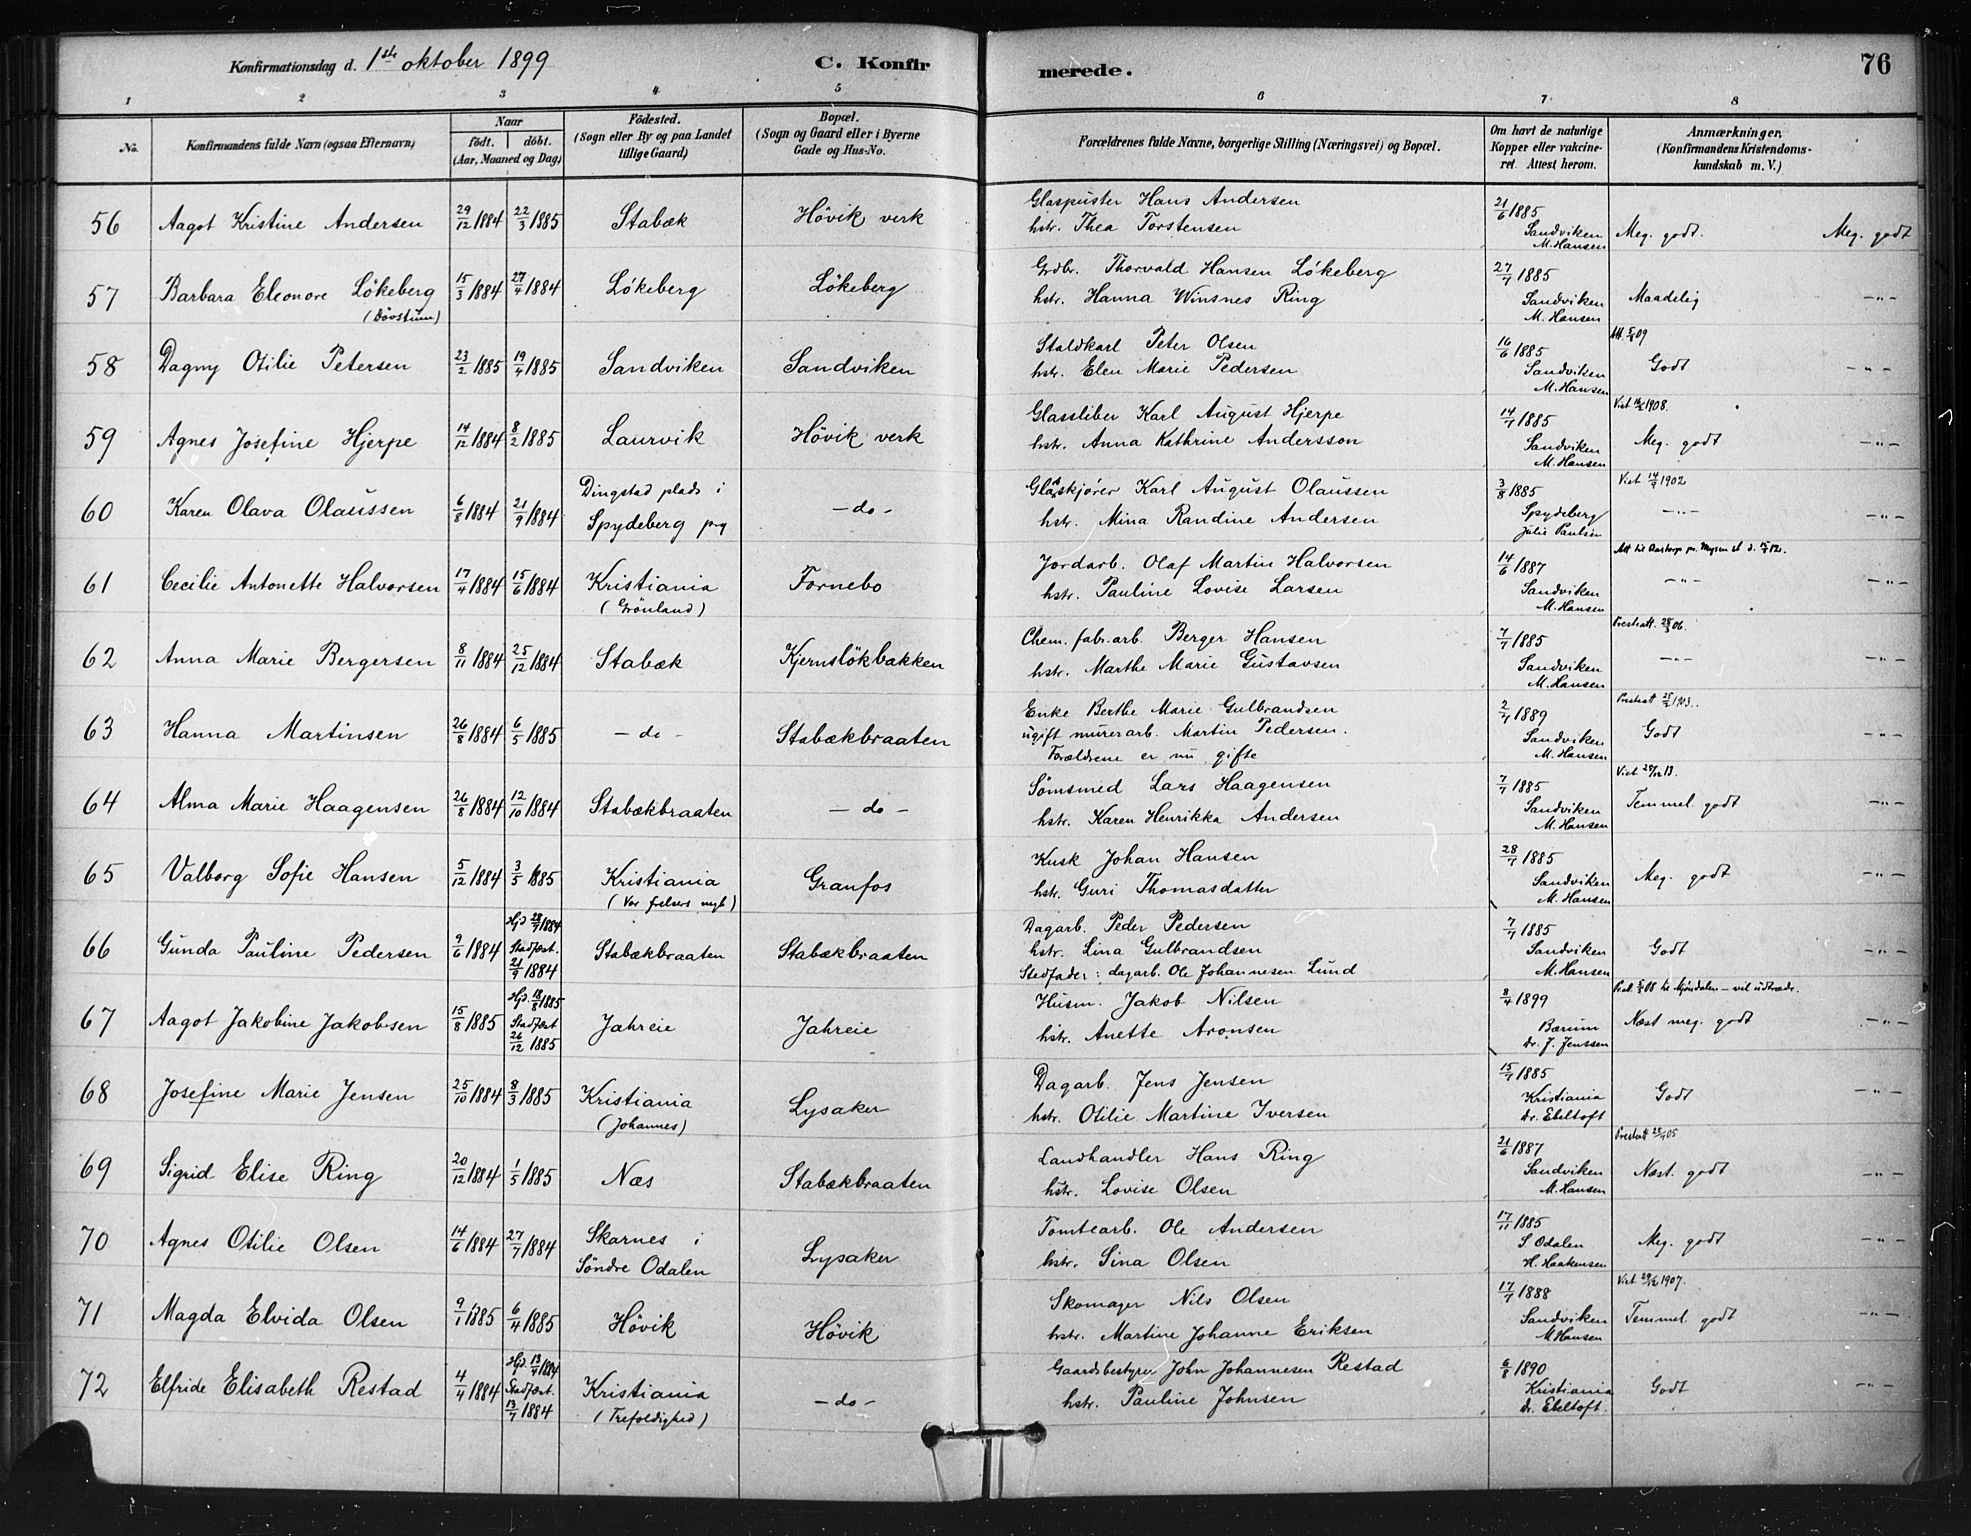 Konfirmationsdag d. 1ste oktober 1899 C. Konfirmerede. 76
1 2 3 4 5 6 7 8
No. Konfirmandens fulde Navn (ogsaa Efternavn) Naar födt. döbt. (Aar, Maaned og Dag) Födested. (Sogn eller By og paa Landet tillige Gaard) Bopæl. (Sogn og Gaard eller i Byerne Gade og Hus-No. Forældrenes fulde Navne, borgerlige Stilling (Næringsvei) og Bopæl. Om havt de naturlige Kopper eller vakcineret. Attest herom. Anmærkninger. (Konfirmandens Kristendomskundskab m. V.)
56 Aagot Kristine Andersen 29/12 1884 22/3 1885 Stabæk Hövik verk Glaspuster Hans Andersen
hstr. Thea Torstensen 21/6 1885 Sandviken M. Hansen Meg. godt. Meg. godt
57 Barbara Eleonore Lökeberg (Dövstum) 15/3 1884 27/4 1884 Lökeberg Lökeberg Grdbr. Thorvald Hansen Lökeberg
hstr. Hanna Winsnes Ring 27/7 1885 Sandviken M. Hansen Maadelig -"-
58 Dagny Otilie Petersen 23/2 1885 19/4 1885 Sandviken Sandviken Staldkarl Peter Olsen
hstr. Elen Marie Pedersen 16/6 1885 Sandviken M. Hansen Godt -"-
59 Agnes Josefine Hjerpe 14/12 1884 8/2 1885 Laurvik Hövik verk Glassliber Karl August Hjerpe
hstr. Anna Kathrine Andersson 14/7 1885 Sandviken M. Hansen Meg. godt -"-
60 Karen Olava Olaussen 6/8 1884 21/9 1884 Dingstad plads i Spydeberg pg -do- Glasskjører Karl August Olaussen
hstr. Mina Randine Andersen 3/8 1885 Spydeberg Julie Paulsen Viet 14/9 1902 -"- -"-
61 Cecilie Antonette Halvorsen 17/4 1884 15/6 1884 Kristiania (Grönland) Fornebo Jordarb. Olaf Martin Halvorsen
hstr. Pauline Lovise Larsen 14/6 1887 Sandviken M. Hansen -"- -"-
62 Anna Marie Bergersen 8/11 1884 25/12 1884 Stabæk Kjernslökbakken Chem. fabr. arb. Berger Hansen
hstr. Marthe Marie Gustavsen 7/7 1885 Sandviken M. Hansen -"- -"-
63 Hanna Martinsen 26/8 1884 6/5 1885 -do- Stabækbraaten Enke Berthe Marie Gulbrandsen
ugift murerarb. Martin Pedersen.
Forældrene er nu gifte 2/7 1889 Sandviken M. Hansen Godt -"-
64 Alma Marie Haagensen 26/8 1884 12/10 1884 Stabækbraaten -do- Sömsmed Lars Haagensen
hstr. Karen Henrikka Andersen 7/7 1885 Sandviken M. Hansen Temmel. godt -"-
65 Valborg Sofie Hansen 5/12 1884 3/5 1885 Kristiania (Vor frelsers mgh) Granfos Kusk Johan Hansen
hstr. Guri Thomasdatter 28/7 1885 Sandviken M. Hansen Meg. godt -"-
66 Gunda Pauline Pedersen 9/6 1884 Hjd 28/7 1884 Stadfæst. 21/9 1884 Stabækbraaten Stabækbraaten Dagarb. Peder Pedersen
hstr. Lina Gulbrandsen
Stedfader: dagarb. Ole Johannesen Lund 7/7 1885 Sandviken M. Hansen Godt -"-
67 Aagot Jakobine Jakobsen 15/8 1885 Hjd. 18/8 1885 Stadfæst 26/12 1885 Jahreie Jahreie Husm. Jakob Nilsen
hstr. Anette Aronsen 8/4 1899 Bærum Dr. J. Jenssen Næst meg. godt -"-
68 Josefine Marie Jensen 25/10 1884 8/3 1885 Kristiania (Johannes) Lysaker Dagarb. Jens Jensen
hstr. Otilie Martine Iversen 15/7 1885 Kristiania Dr. Ebeltoft Godt -"-
69 Sigrid Elise Ring 20/12 1884 1/5 1885 Næs Stabækbraaten Landhandler Hans Ring
hstr. Lovise Olsen 21/6 1887 Sandviken M. Hansen Næst. godt -"-
70 Agnes Otilie Olsen 14/6 1884 27/7 1884 Skarnes i Söndre Odalen Lysaker Tomtearb. Ole Andersen
hstr. Sina Olsen 17/11 1885 S Odalen H. Haakensen Meg. godt -"-
71 Magda Elvida Olsen 9/1 1885 6/4 1885 Hövik Hövik Skomager Nils Olsen
hstr. Martine Johanne Eriksen 17/7 1888 Sandviken M Hansen Temmel. godt -"-
72 Elfride Elisabeth Restad 4/4 1884 Hjd. 13/4 1884 Stadfæst. 13/7 1884 Kristiania (Trefoldighed) -do- Gaardsbestyrer John Johannesen Restad
hstr. Pauline Johnsen 6/8 1890 Kristiania Dr. Ebeltoft. Godt -"-